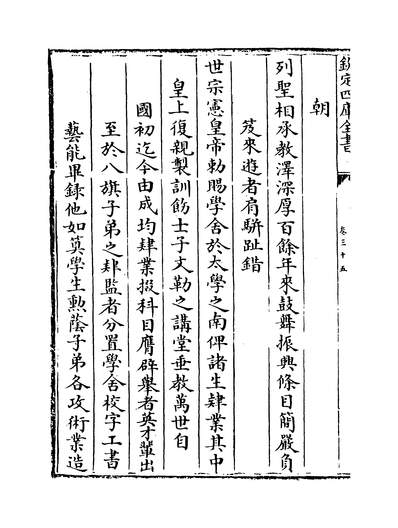 欽定四庫全書
卷三十五
朝
列聖相承教澤深厚百餘年來鼓舞振興條目簡嚴負
笈來遊者肩駢趾錯
世宗憲皇帝勅賜學舍於太學之南俾諸生肄業其中
皇上復親製訓飭士子文勒之講堂垂教萬世自
國初迄今由成均肄業掇科目膺辟舉者英才輩出
至於八旗子弟之肄監者分置學舍校字工書
藝能畢錄他如筭學生勲蔭子弟各攻術業造